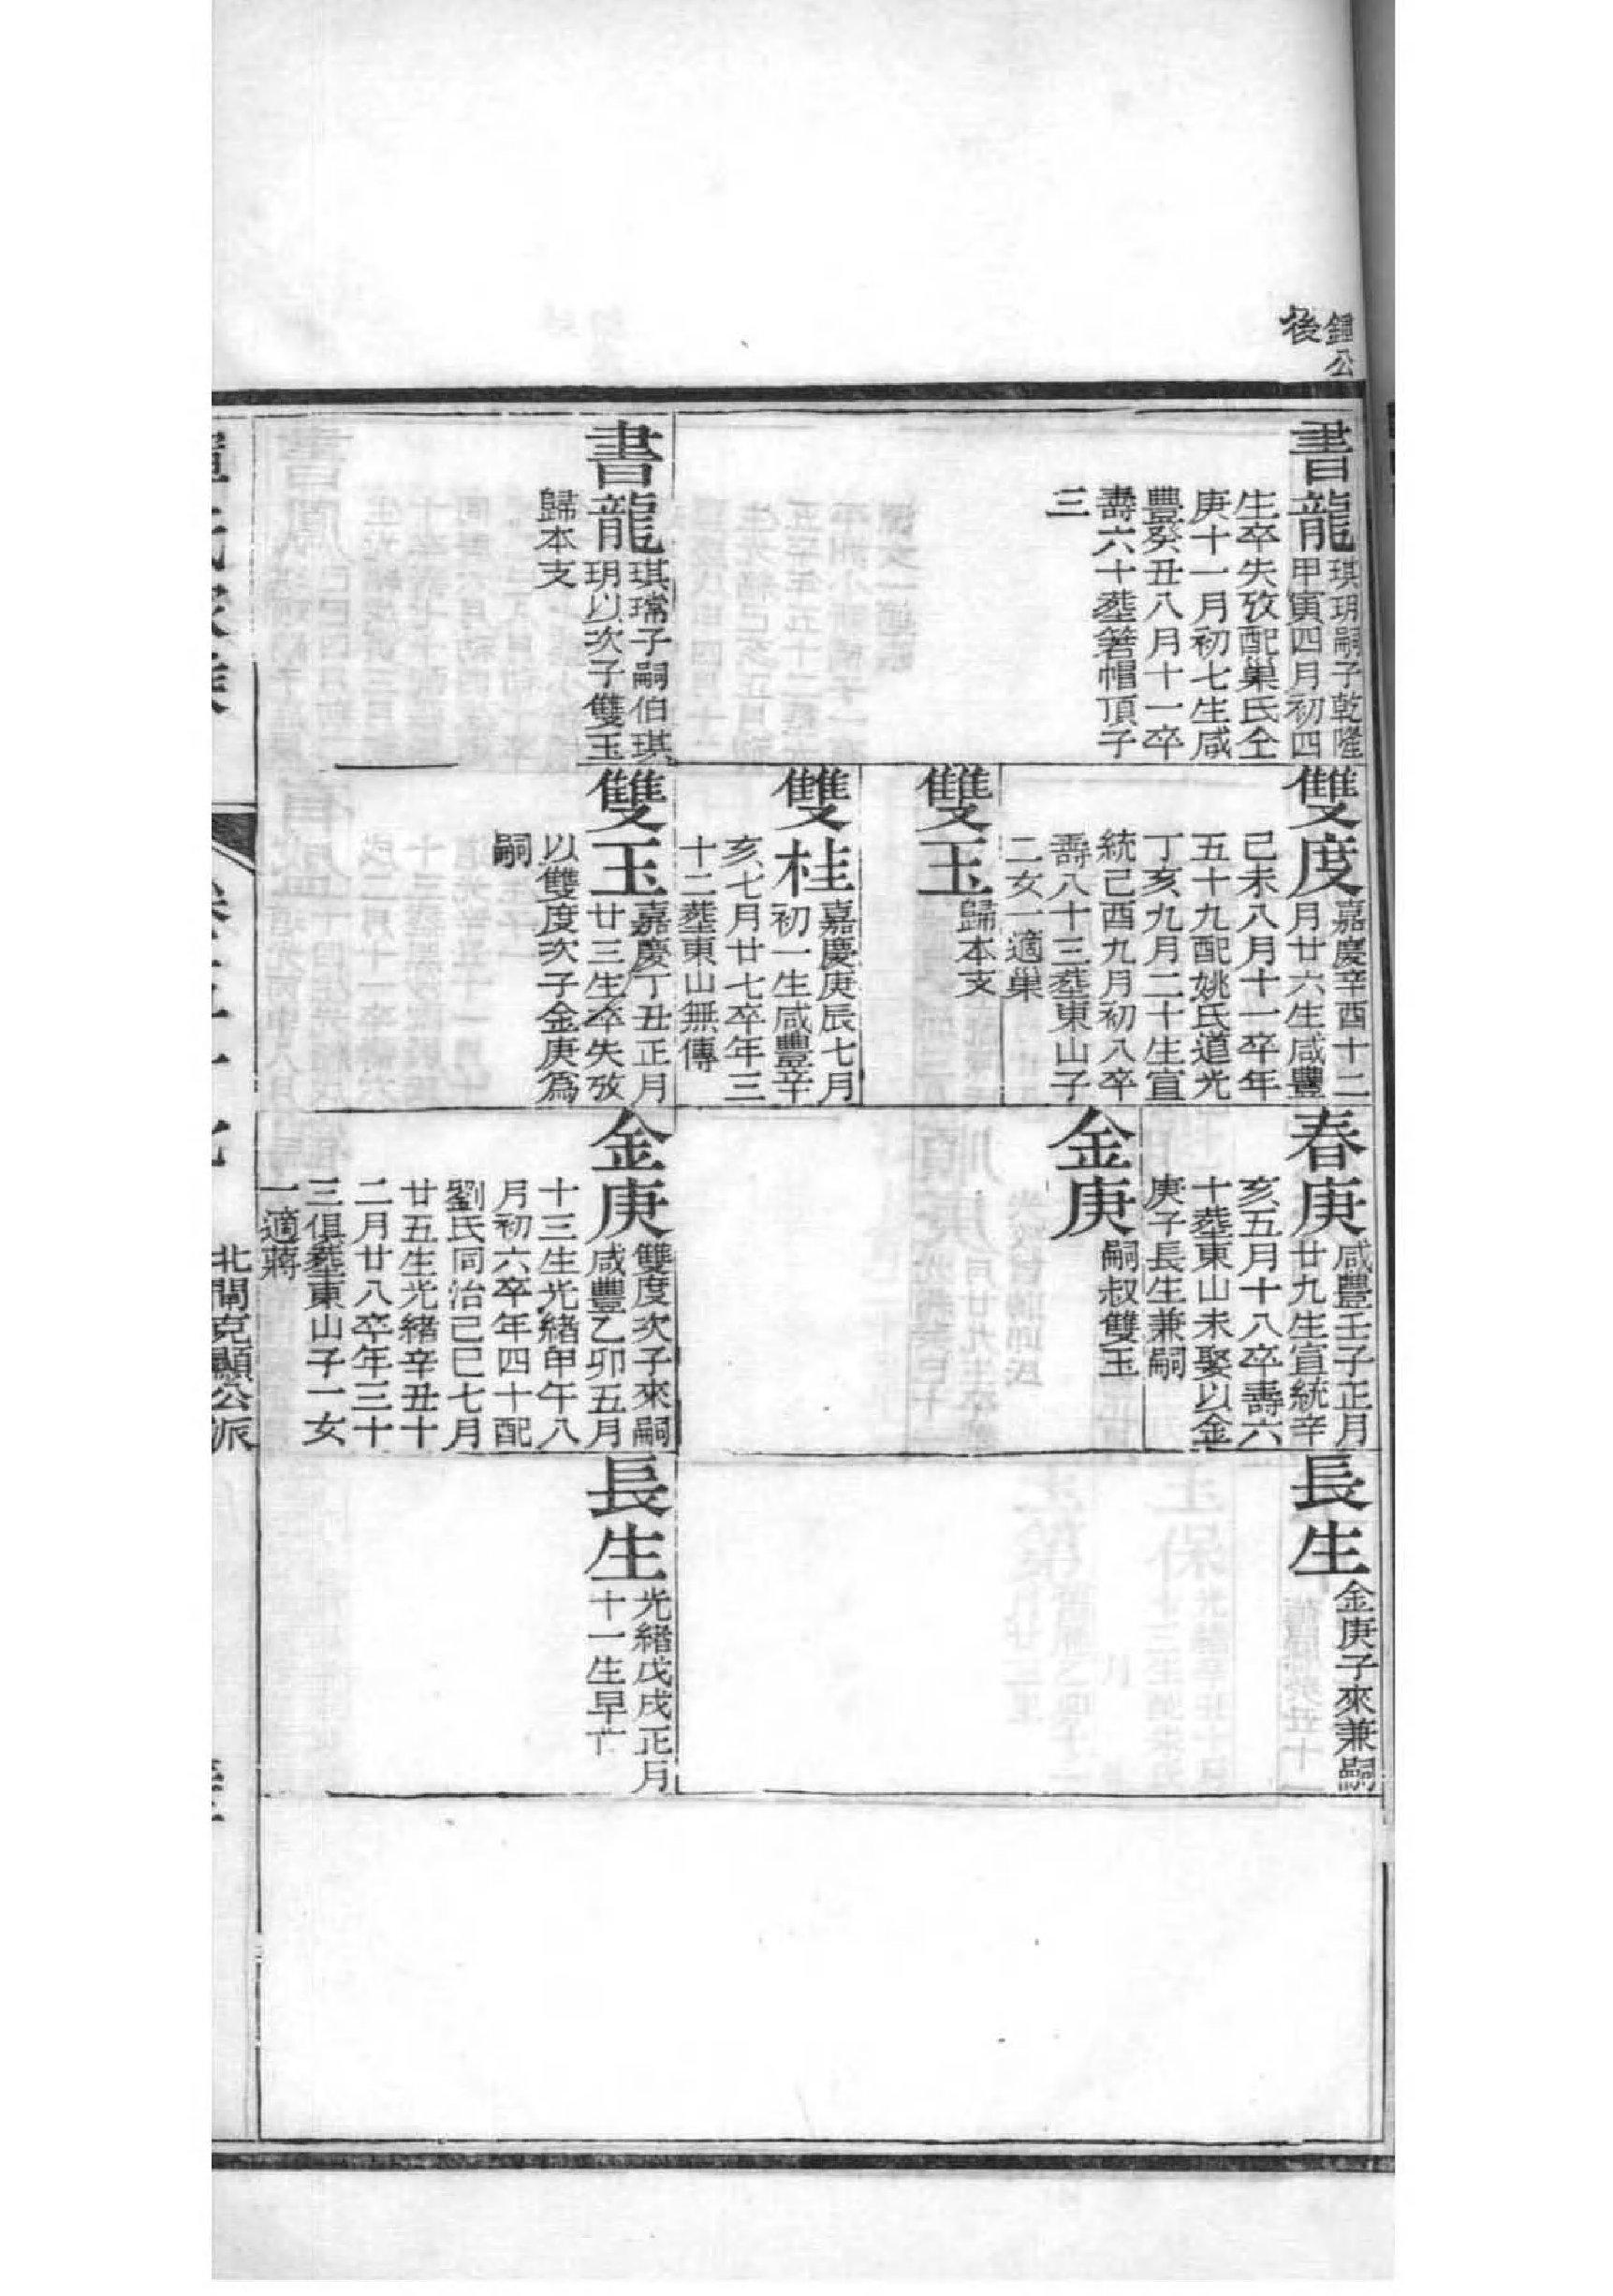 鍾公
後
書龍
琪玥嗣子乾隆
甲寅四月初四
生卒失攷配巢氏仝
庚十一月初七生咸
豐癸丑八月十一卒
壽六十塟箬帽頂子
三
書龍
琪瑺子嗣伯琪
玥以次子雙玉
歸本支
雙度
嘉慶辛酉十二
月廿六生咸豐
己未八月十一卒年
五十九配姚氏道光
丁亥九月二十生宣
統己酉九月初八卒
壽八十三塟東山子
二女一適巢
雙玉
歸本支
雙桂
嘉慶庚辰七月
初一生咸豐辛
亥七月廿七卒年三
十二塟東山無傳
雙玉
嘉慶丁丑正月
廿三生卒失攷
以雙度次子金庚爲
嗣
春庚
咸豐壬子正月
廿九生宣統辛
亥五月十八卒壽六
十塟東山未娶以金
庚子長生兼嗣
金庚
嗣叔雙玉
金庚
雙度次子來嗣
咸豐乙卯五月
十三生光緒甲午八
月初六卒年四十配
劉氏同治己巳七月
廿五生光緒辛丑十
二月廿八卒年三十
三俱塟東山子一女
一適蔣
長生
金庚子來兼嗣
長生
光緒戊戌正月
十一生早亡
北閘克顯公派